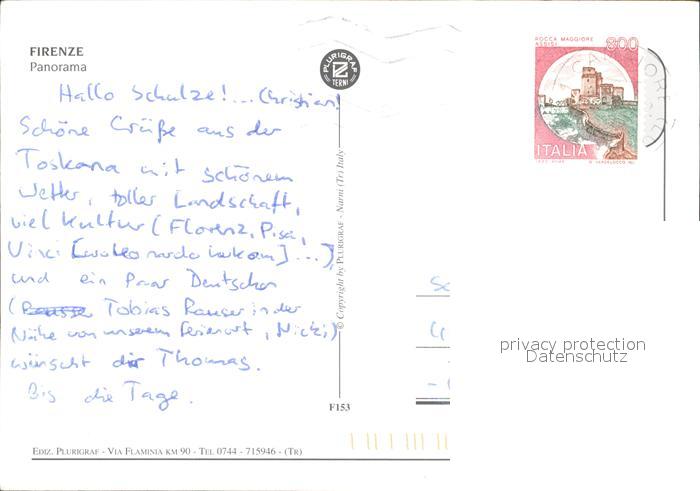 FIRENZE
Panorama
Hallo Schulze!... Christian!
Schöne Grüße aus der
Toskana mit schönem
Wetter, toller Landschaft,
viel Kultur (Florenz, Pisa,
Vinci [wo Leonardo herkam]...),
und ein paar Deutschen
( Tobias Rauser in der
Nähe von unserem Ferienort, Nicki)
wünscht dir Thomas.
Bis die Tage.
PLURIGRAF
TERNI
© Copyright by PLURIGRAF - Narni (Tr) Italy
F153
EDIZ. PLURIGRAF - VIA FLAMINIA KM 90 - TEL 0744 - 715946 - (TR)
ROCCA MAGGIORE
ASSISI
800
ITALIA
privacy protection
Datenschutz